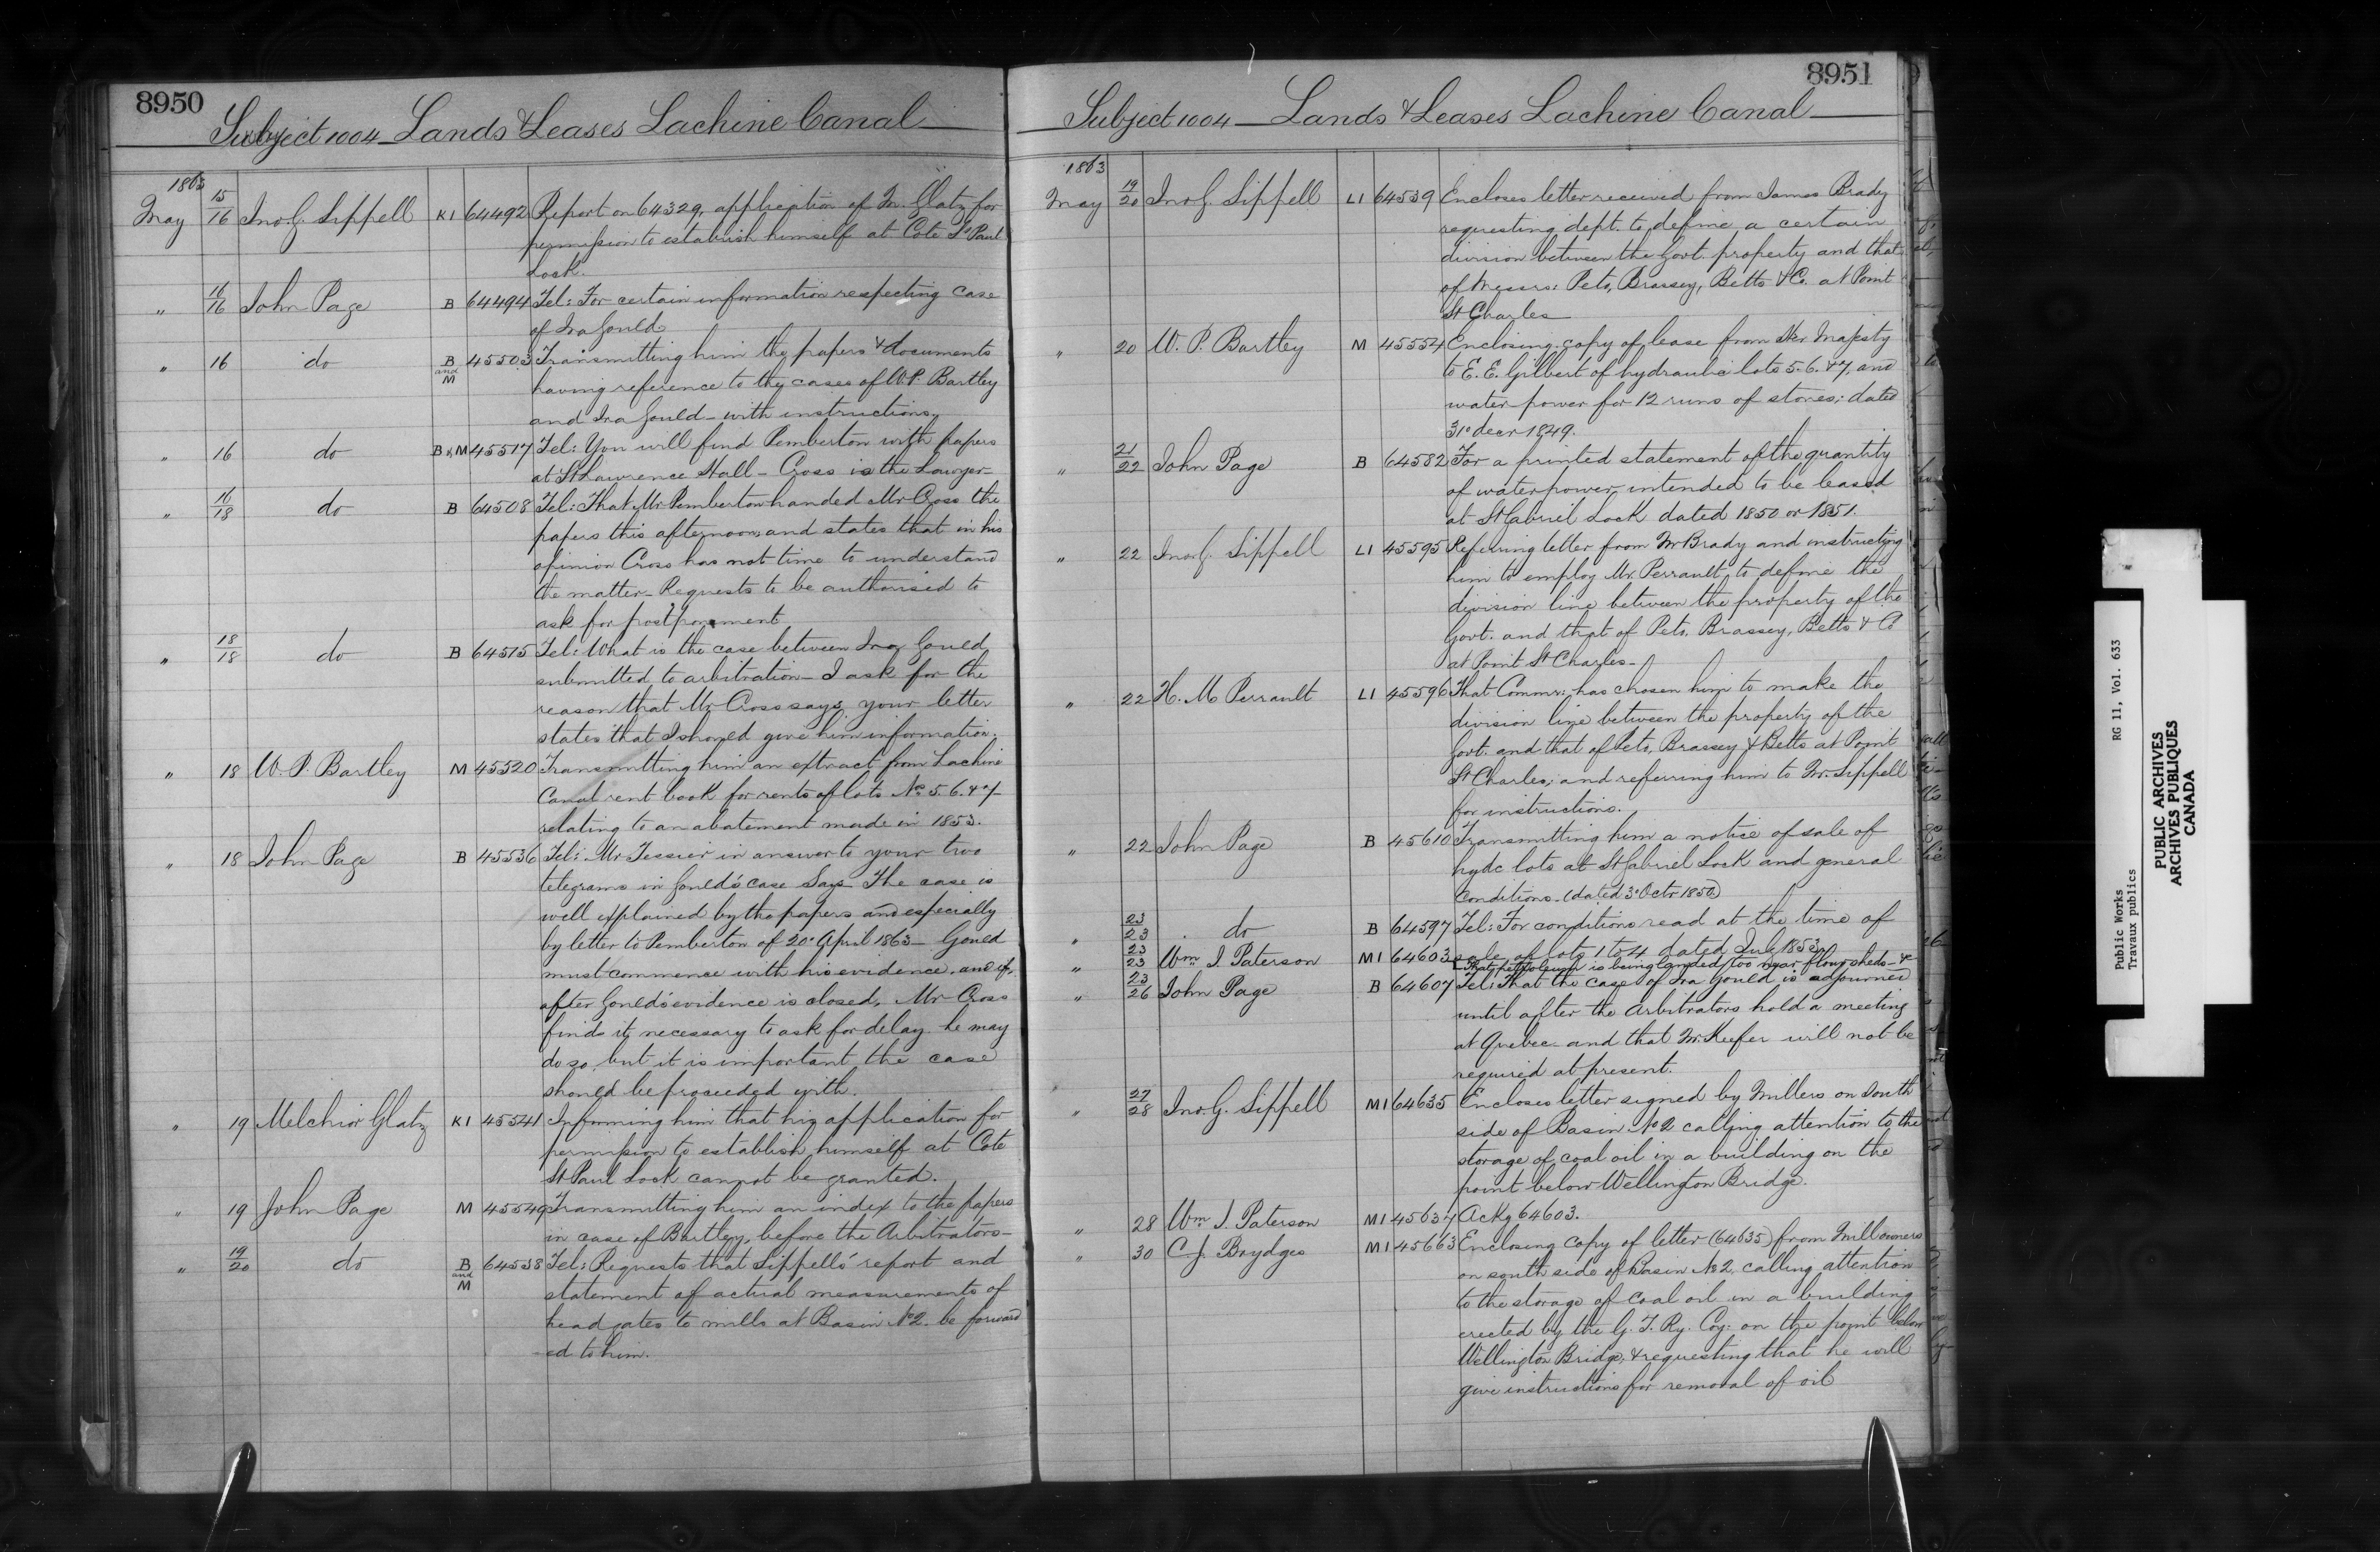 8950
Subject 1004 Lands & Leases Lachine Canal
1863
May 15/16 Jno G. Sippell K1 64492 Report on 64329, application of M. Glatz for
permission to establish himself at Cote St Paul
Lock.
" 16/16 John Page B 64494 Tel: For certain information respecting case
of Ira Gould
" 16 do B and M 45503 Transmitting him the papers & documents
having reference to the cases of W.P. Bartley
and Ira Gould - with instructions.
" 16 do B & M 45517 Tel: You will find Pemberton with papers
at St Lawrence Hall - Cross is the Lawyer -
" 16/18 do B 64508 Tel: That Mr Pemberton handed Mr Cross the
papers this afternoon and states that in his
opinion Cross has not time to understand
the matter - Requests to be authorised to
ask for postponement
" 18/18 do B 64515 Tel: What is the case between Ira Gould
submitted to arbitration - I ask for the
reason that Mr Cross says your letter
states that I should give him information.
" 18 W. P. Bartley M 45520 Transmitting him an extract from Lachine
Canal rent book for rents of lots No 5. 6. & 7
relating to an abatement made in 1853.
" 18 John Page B 45536 Tel: Mr Tessier in answer to your two
telegrams in Gould's case Says The case is
well explained by the papers and especially
by letter to Pemberton of 20th April 1863 - Gould
must commence with his evidence, and if,
after Gould's evidence is closed, Mr Cross
finds it necessary to ask for delay he may
do so, but it is important the case
should be proceeded with.
" 19 Melchior Glatz K1 45541 Informing him that his application for
permission to establish himself at Cote
St Paul Lock cannot be granted.
" 19 John Page M 45549 Transmitting him an index to the papers
in case of Bartley, before the Arbitrators -
" 19/20 do B and M 64538 Tel: Requests that Sippell's report and
statement of actual measurements of
head gates to mills at Basin No 2. be forward
-ed to him.
8951
Subject 1004 Lands & Leases Lachine Canal
1863
May 19/20 Jno G. Sippell L1 64539 Encloses letter received from James Brady
requesting dept. to define a certain
division between the Govt. property and that
of Messrs: Peto, Brassey, Betts & Co. at Point
St Charles
" 20 W. P. Bartley M 45554 Enclosing copy of lease from Her Majesty
to E. E. Gilbert of hydraulic lots 5. 6. & 7, and
water power for 12 runs of stones; dated
31st decr 1849.
" 21/22 John Page B 64582 For a printed statement of the quantity
of water power intended to be leased
at St Gabriel Lock dated 1850 or 1851.
" 22 Jno G. Sippell L1 45595 Referring letter from Mr Brady and instructing
him to employ Mr. Perrault, to define the
division line between the property of the
Govt. and that of Peto, Brassey, Betts & Co
at Point St Charles -
" 22 H. M Perrault L1 45596 That Commr: has chosen him to make the
division line between the property of the
Govt. and that of Peto, Brassey & Betts at Point
St Charles; and referring him to Mr. Sippell
for instructions.
" 22 John Page B 45610 Transmitting him a notice of sale of
hydc lots at St Gabriel Lock and general
Conditions - (dated 3d Octr 1850)
" 23/23 do B 64597 Tel: For conditions read at the time of
sale of lots 1 to 4 dated July 1853
" 23/23 Wm J. Paterson M1 64603 That petroleum is being landed too near flour sheds - &c
" 23/26 John Page B 64607 Tel: That the case of Ira Gould is adjourned
until after the Arbitrators hold a meeting
at Quebec and that Mr. Keefer will not be
required at present.
" 27/28 Jno. G. Sippell M1 64635 Encloses letter signed by Millers on South
side of Basin No 2 calling attention to the
storage of coal oil in a building on the
point below Wellington Bridge.
" 28 Wm J. Paterson M1 45637 Ackg 64603.
" 30 C. J. Brydges M1 45663 Enclosing copy of letter (64635) from Mill owners
on south side of Basin No 2, calling attention
to the storage of coal oil in a building
erected by the G. T. Ry. Coy: on the point below
Wellington Bridge; & requesting that he will
give instructions for removal of oil
Public Works RG 11, Vol. 633
Travaux publics
PUBLIC ARCHIVES
ARCHIVES PUBLIQUES
CANADA